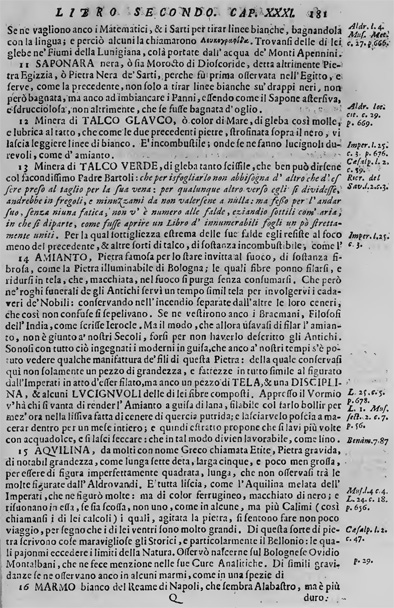 LIBRO SECONDO. CAP. XXXI. 181
Se ne vagliono anco i Matematici, & i Sarti per tirar linee bianche, bagnandola
con la lingua; e perciò alcuni la chiamarono Trovansi delle di lei
glebe ne' Fiumi della Lunigiana, colà portate dall' acqua de' Monti Apennini.
11 SAPONARA nera, ò sia Morocto di Dioscoride, detta altrimente Pie-
tra Egizzia, ò Pietra Nera de' Sarti, perche fù prima osservata nell' Egitto, e
serve, come la precedente, non solo a tirar linee bianche sù drappi neri, non
però bagnata, ma anco ad imbiancare i Panni, essendo come il Sapone astersiva,
e sdrucciolosa, non altrimente, che se fusse bagnata d'oglio.
12 Minera di TALCO GLAVCO, ò color di Mare, di gleba così molle,
e lubrica al tatto, che come le due precedenti pietre, strofinata sopra il nero, vi
lascia leggiere linee di bianco. E' incombustile; onde se ne fanno lucignoli du-
revoli, come d' amianto.
13 Minera di TALCO VERDE, di gleba tanto scissile, che ben può dirsene
col facondissimo Padre Bartoli: che per isfogliarlo non abbisogna d' altro che d' es-
sere preso al taglio per la sua vena: per qualunque altro verso egli si dividesse,
andrebbe in fregoli, e minuzzami da non valersene a nulla: ma fesso per l' andar
suo, senza niuna fatica, non v' è numero alle falde, eziandio sottili com' aria,
in che si diparte, come fusse aprire un Libro d' innumerabili fogli un pò stretta-
mente uniti. Per la qual sottigliezza estrema delle sue falde egli resiste al foco
meno del precedente, & altre sorti di talco, di sostanza incombustibile, come l'
14 AMIANTO, Pietra famosa per lo stare invitta al fuoco, di sostanza fi-
brosa, come la Pietra illuminabile di Bologna; le quali fibre ponno filarsi, e
ridursi in tela, che, macchiata, nel fuoco si purga senza consumarsi. Che però
ne' roghi funerali de gli Antichi servì un tempo simil tela per involgervi i cada-
veri de' Nobili: conservando nell' incendio separate dall' altre le loro ceneri,
che così non confuse si sepelivano. Se ne vestirono anco i Bracmani, Filosofi
dell' India, come scrisse Ierocle. Ma il modo, che allora usavasi di filar l' amian-
to, non è giunto a' nostri Secoli, forsi per non haverlo descritto gli Antichi.
Sonosi con tutto ciò ingegnati i moderni in guisa, che anco a' nostri tempi s' è po-
tuto vedere qualche manifattura de' fili di questa Pietra: della quale conservasi
quì non solamente un pezzo di grandezza, e fatezze in tutto simile al figurato
dall' Imperati in atto d' esser filato, ma anco un pezzo di TELA, & una DISCIPLI-
NA, & alcuni LUCIGNVOLI delle di lei fibre composti, Appresso il Vormio
v' hà chi si vanta di render l' Amianto a guisa di lana, filabile col farlo bollir per
mez' ora nella lissiva fatta di cenere di quercia putrida; e lasciarvelo poscia a ma-
cerar dentro per un mese intiero; e quindi estratto propone che si lavi più volte
con acqua dolce, e si lasci seccare: che in tal modo divien lavorabile, come lino.
15 AQVILINA, da molti con nome Greco chiamata Etite, Pietra gravida,
di notabil grandezza, come lunga sette deta, larga cinque, e poco men grossa,
per essere di figura imperfettamente quadrata, lunga, che non osservasi trà le
molte figurate dall' Aldrovandi. E' tutta liscia, come l' Aquilina melata dell'
Imperati, che ne figurò molte: ma di color ferrugineo, macchiato di nero; e
risuonano in essa, se sia scossa, non uno, come in alcune, ma più Calimi (così
chiamansi i di lei calcoli) i quali, agitata la pietra, si sentono fare non poco
viaggio, per segno che i di lei ventri sono molto grandi. Di questa sorte di pie-
tra scrivono cose maravigliose gli Storici, e particolarmente il Bellonio: le qua-
li pajonmi eccedere i limiti della Natura. Osservò nascerne sul Bolognese Ovidio
Montalbani, che ne fece menzione nelle sue Cure Analitiche. Di simili gravi-
danze se ne osservano anco in alcuni marmi, come in una spezie di
16 MARMO bianco del Reame di Napoli, che sembra Alabastro, ma è più
Q duro:
Aldr. l. 4.
Mus. Met.
c. 27. p. 666.
Aldr. loc.
cit. c. 29.
p. 669.
Imper. l. 25.
c. 3. p. 676.
Cesalp. l. 2.
c. 59.
Ricr. del
Sav. l. 2. c. 3.
Imper. l. 25.
c. 3.
L. 25. c. 5.
p. 678.
L. 1. Mus.
sect. 2. c. 7.
p. 56.
Benim. 7. 87
Mus. l. 4 c. 4.
L. 24. c. 18.
p. 636.
Cesalp. l. 2.
c. 47.
p. 29.